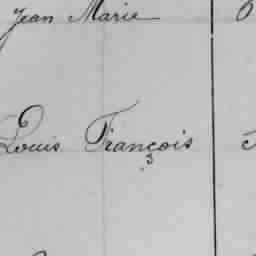 Jean Marie
Louis François